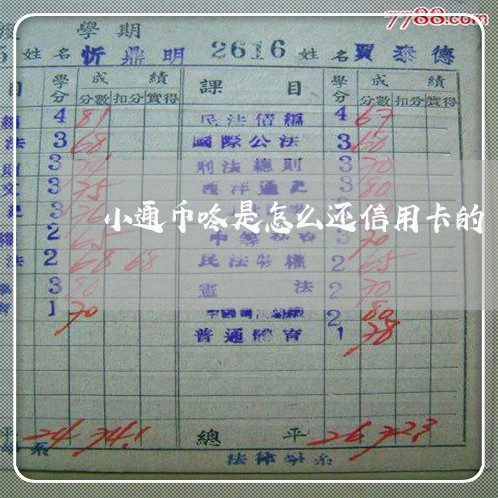 7788.com
學期
姓名 忻鼎明 2616 姓名 賈泰德
目 學分 成績 課目 學分 成績
分數 扣分 實得 分數 扣分 實得
4 81 民法債編 4 67
法 3 68 國際公法 3 60
3 刑法總則 3 70
3 75 西洋通史 3 80
小通币咚是怎么还信用卡的
2 65 3 70
法 2 68 68 民法物權 2 65
3 80 憲法 2 70
1 70 2 80
普通體育 1 78
平 24 74.1 總平 26 72.3
系 法律學系